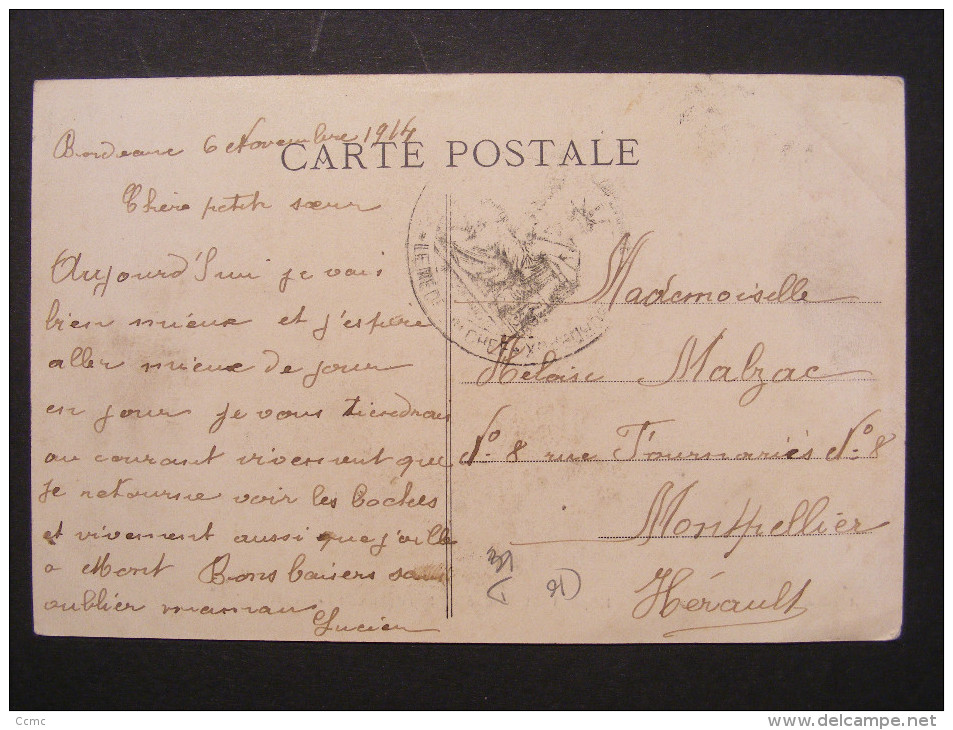 Bordeaux 6 Novembre 1914
CARTE POSTALE
Chère petite sœur
Aujourd'hui je vais
bien mieux et j'espère
aller mieux de jour
en jour je vous tiendrais
au courant vivement que
je retourne voir les boches
et vivement aussi que j'aille
a Mont Bons baisers sans
oublier maman
Lucien
Mademoiselle
Heloise Malzac
N° 8 rue Fournariés N° 8
Montpellier
Hérault
Ccmc
http://www.delcampe.net